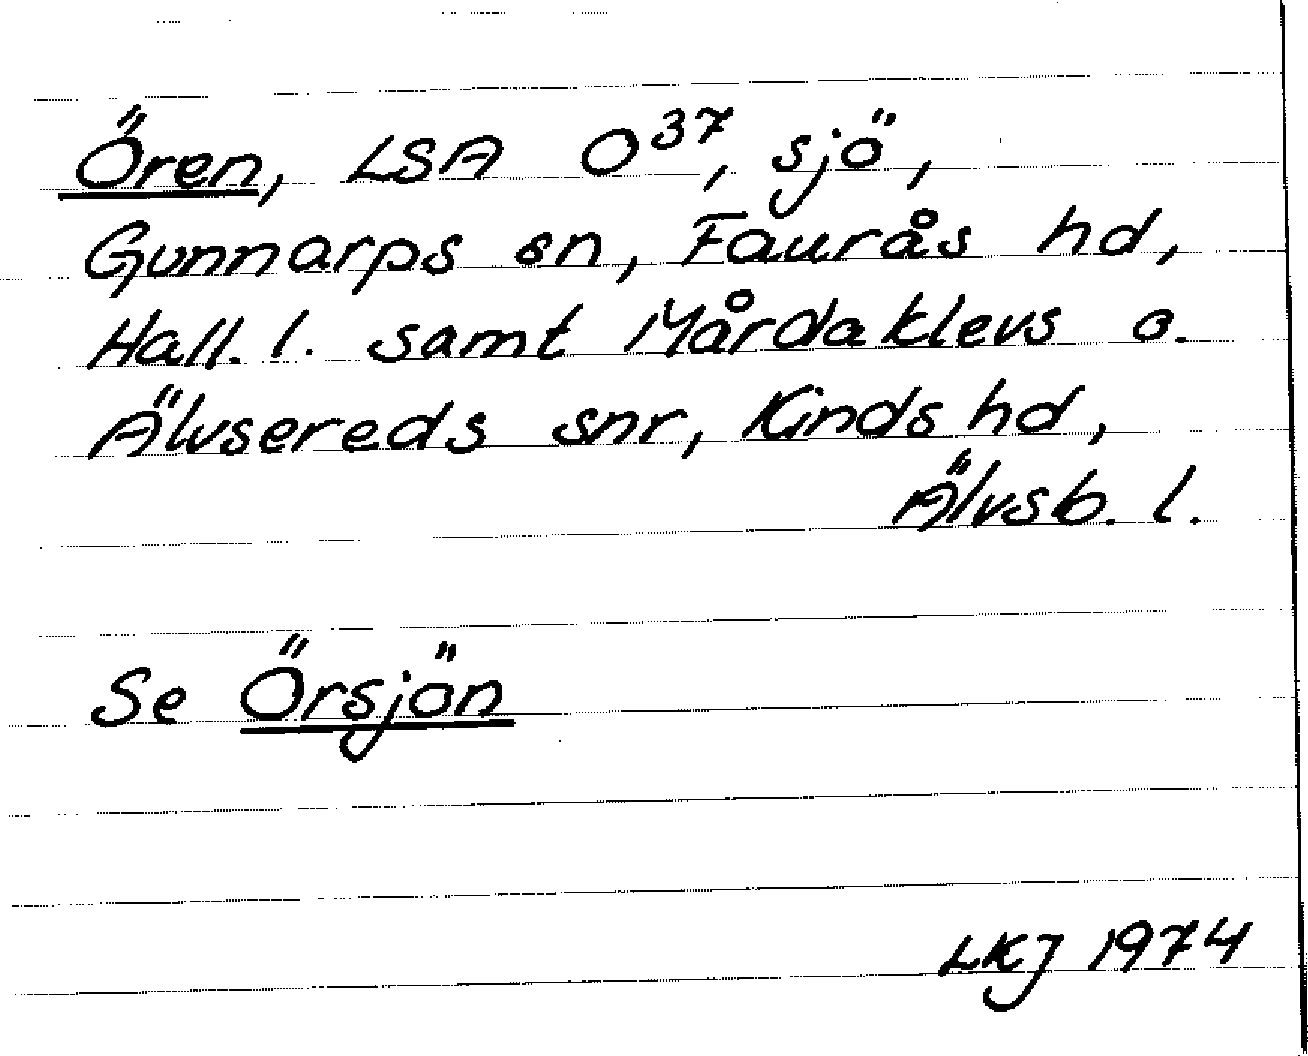 Ören, LSA O37, sjö,
Gunnarps sn, Faurås hd,
Hall. l. samt Mårdaklevs o.
Älvsereds snr, Kinds hd,
Älvsb. l.
Se Örsjön
LKJ 1974